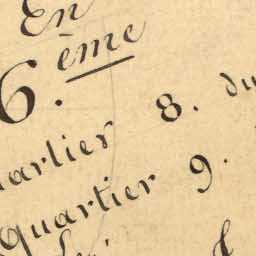 En
6.ème
uartier 8. du
Quartier 9.